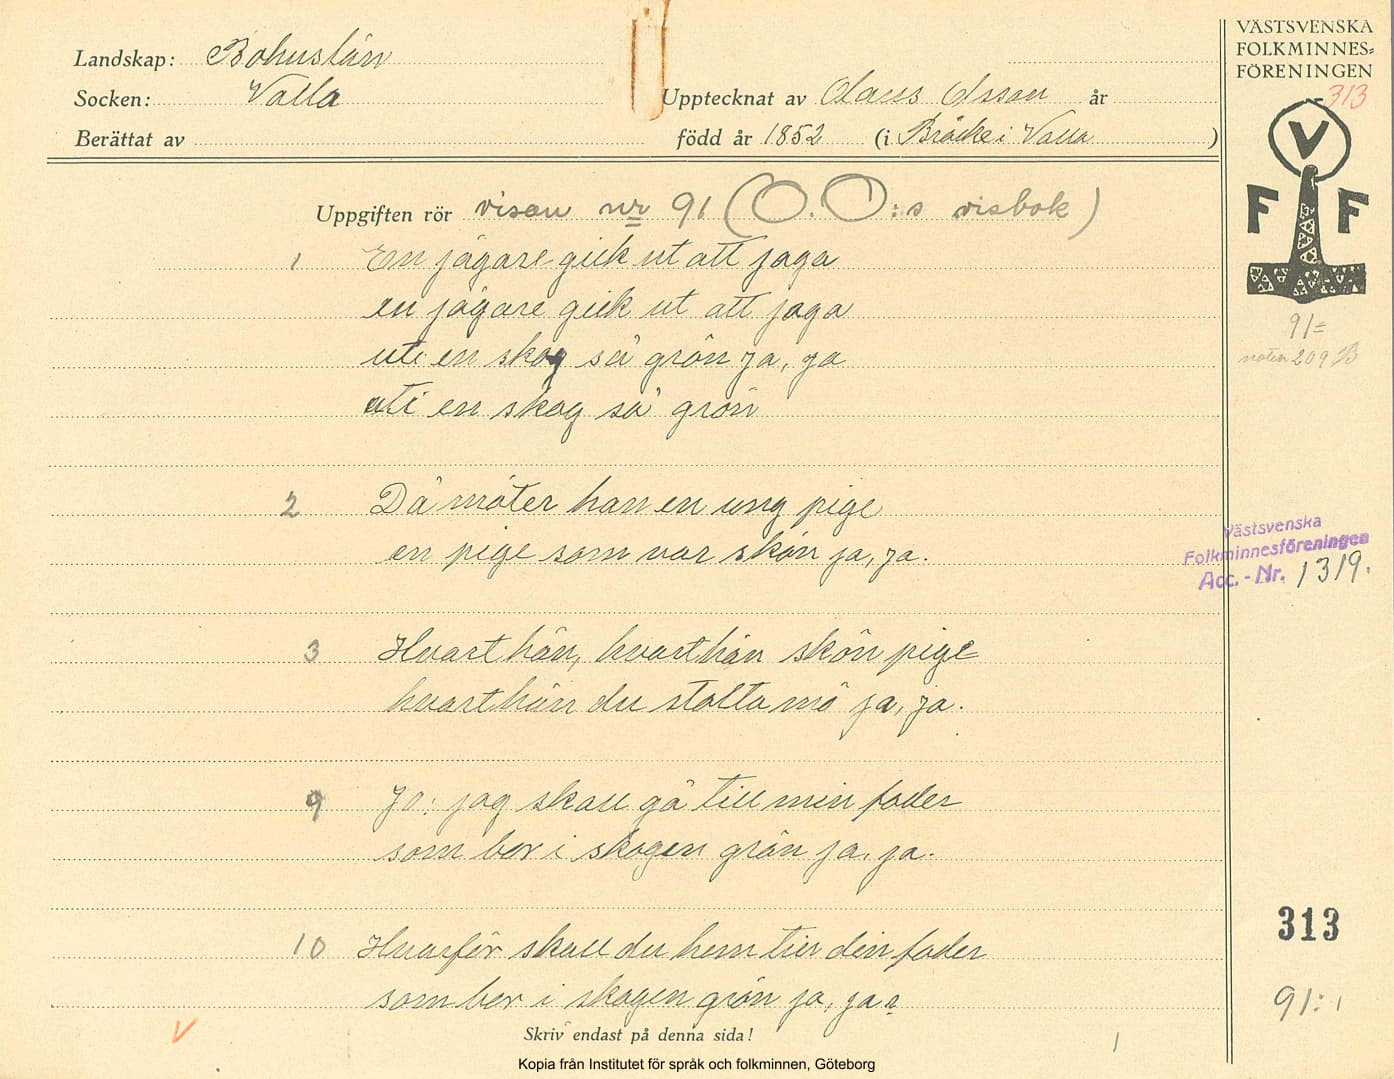 Landskap: Bohuslän
Socken: Valla
Berättat av
Upptecknat av Olaus Olsson år
född år 1852 (i Bräcke i Valla )
VÄSTSVENSKA
FOLKMINNES=
FÖRENINGEN
313
V
F F
91=
noten 209 B
Uppgiften rör visan nr 91 (O. O:s visbok)
1 En jägare gick ut att jaga
en jägare gick ut att jaga
uti en skog så grön ja, ja
uti en skog så grön
2 Då möter han en ung pige
en pige som var skön ja, ja.
Västsvenska
Folkminnesföreningen
Acc.-Nr. 1319.
3 Hvart hän, hvart hän skön pige
hvart hän du stolta mö ja, ja.
9 Ja: jag skall gå till min fader
som bor i skogen grön ja, ja.
10 Hvarför skall du hem till din fader
som bor i skogen grön ja, ja?
313
91:1
Skriv endast på denna sida!
1
Kopia från Institutet för språk och folkminnen, Göteborg